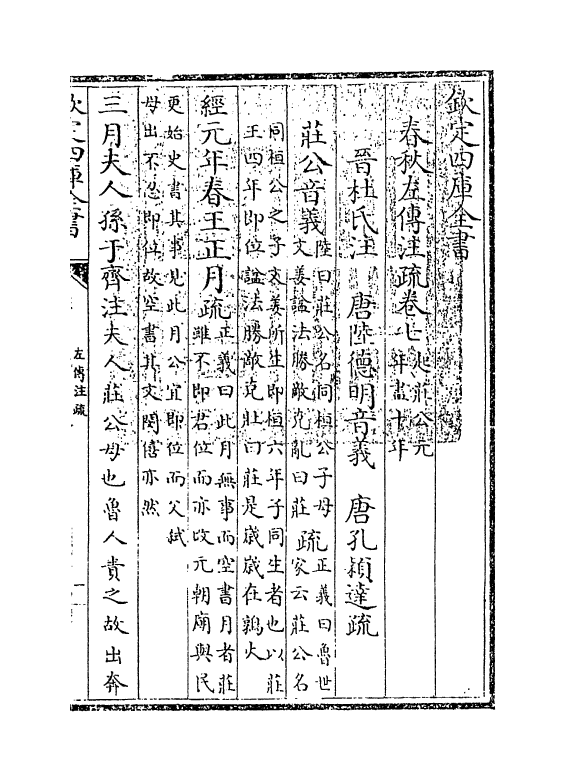 欽定四庫全書
春秋左傳注疏卷七起莊公元年盡十年
晉杜氏注 唐陸德明音義 唐孔穎達疏
莊公音義陸曰莊公名同桓公子母文姜諡法勝敵克亂曰莊疏正義曰魯世家云莊公名
同桓公之子文姜所生即桓六年子同生者也以莊王四年即位諡法勝敵克壯曰莊是歲歲在鶉火
經元年春王正月疏正義曰此月無事而空書月者莊雖不即君位而亦改元朝廟與民
更始史書其事見此月公宜即位而父弑母出不忍即位故空書其文閔僖亦然
三月夫人孫于齊注夫人莊公母也魯人責之故出奔
欽定四庫全書
左傳注疏
一